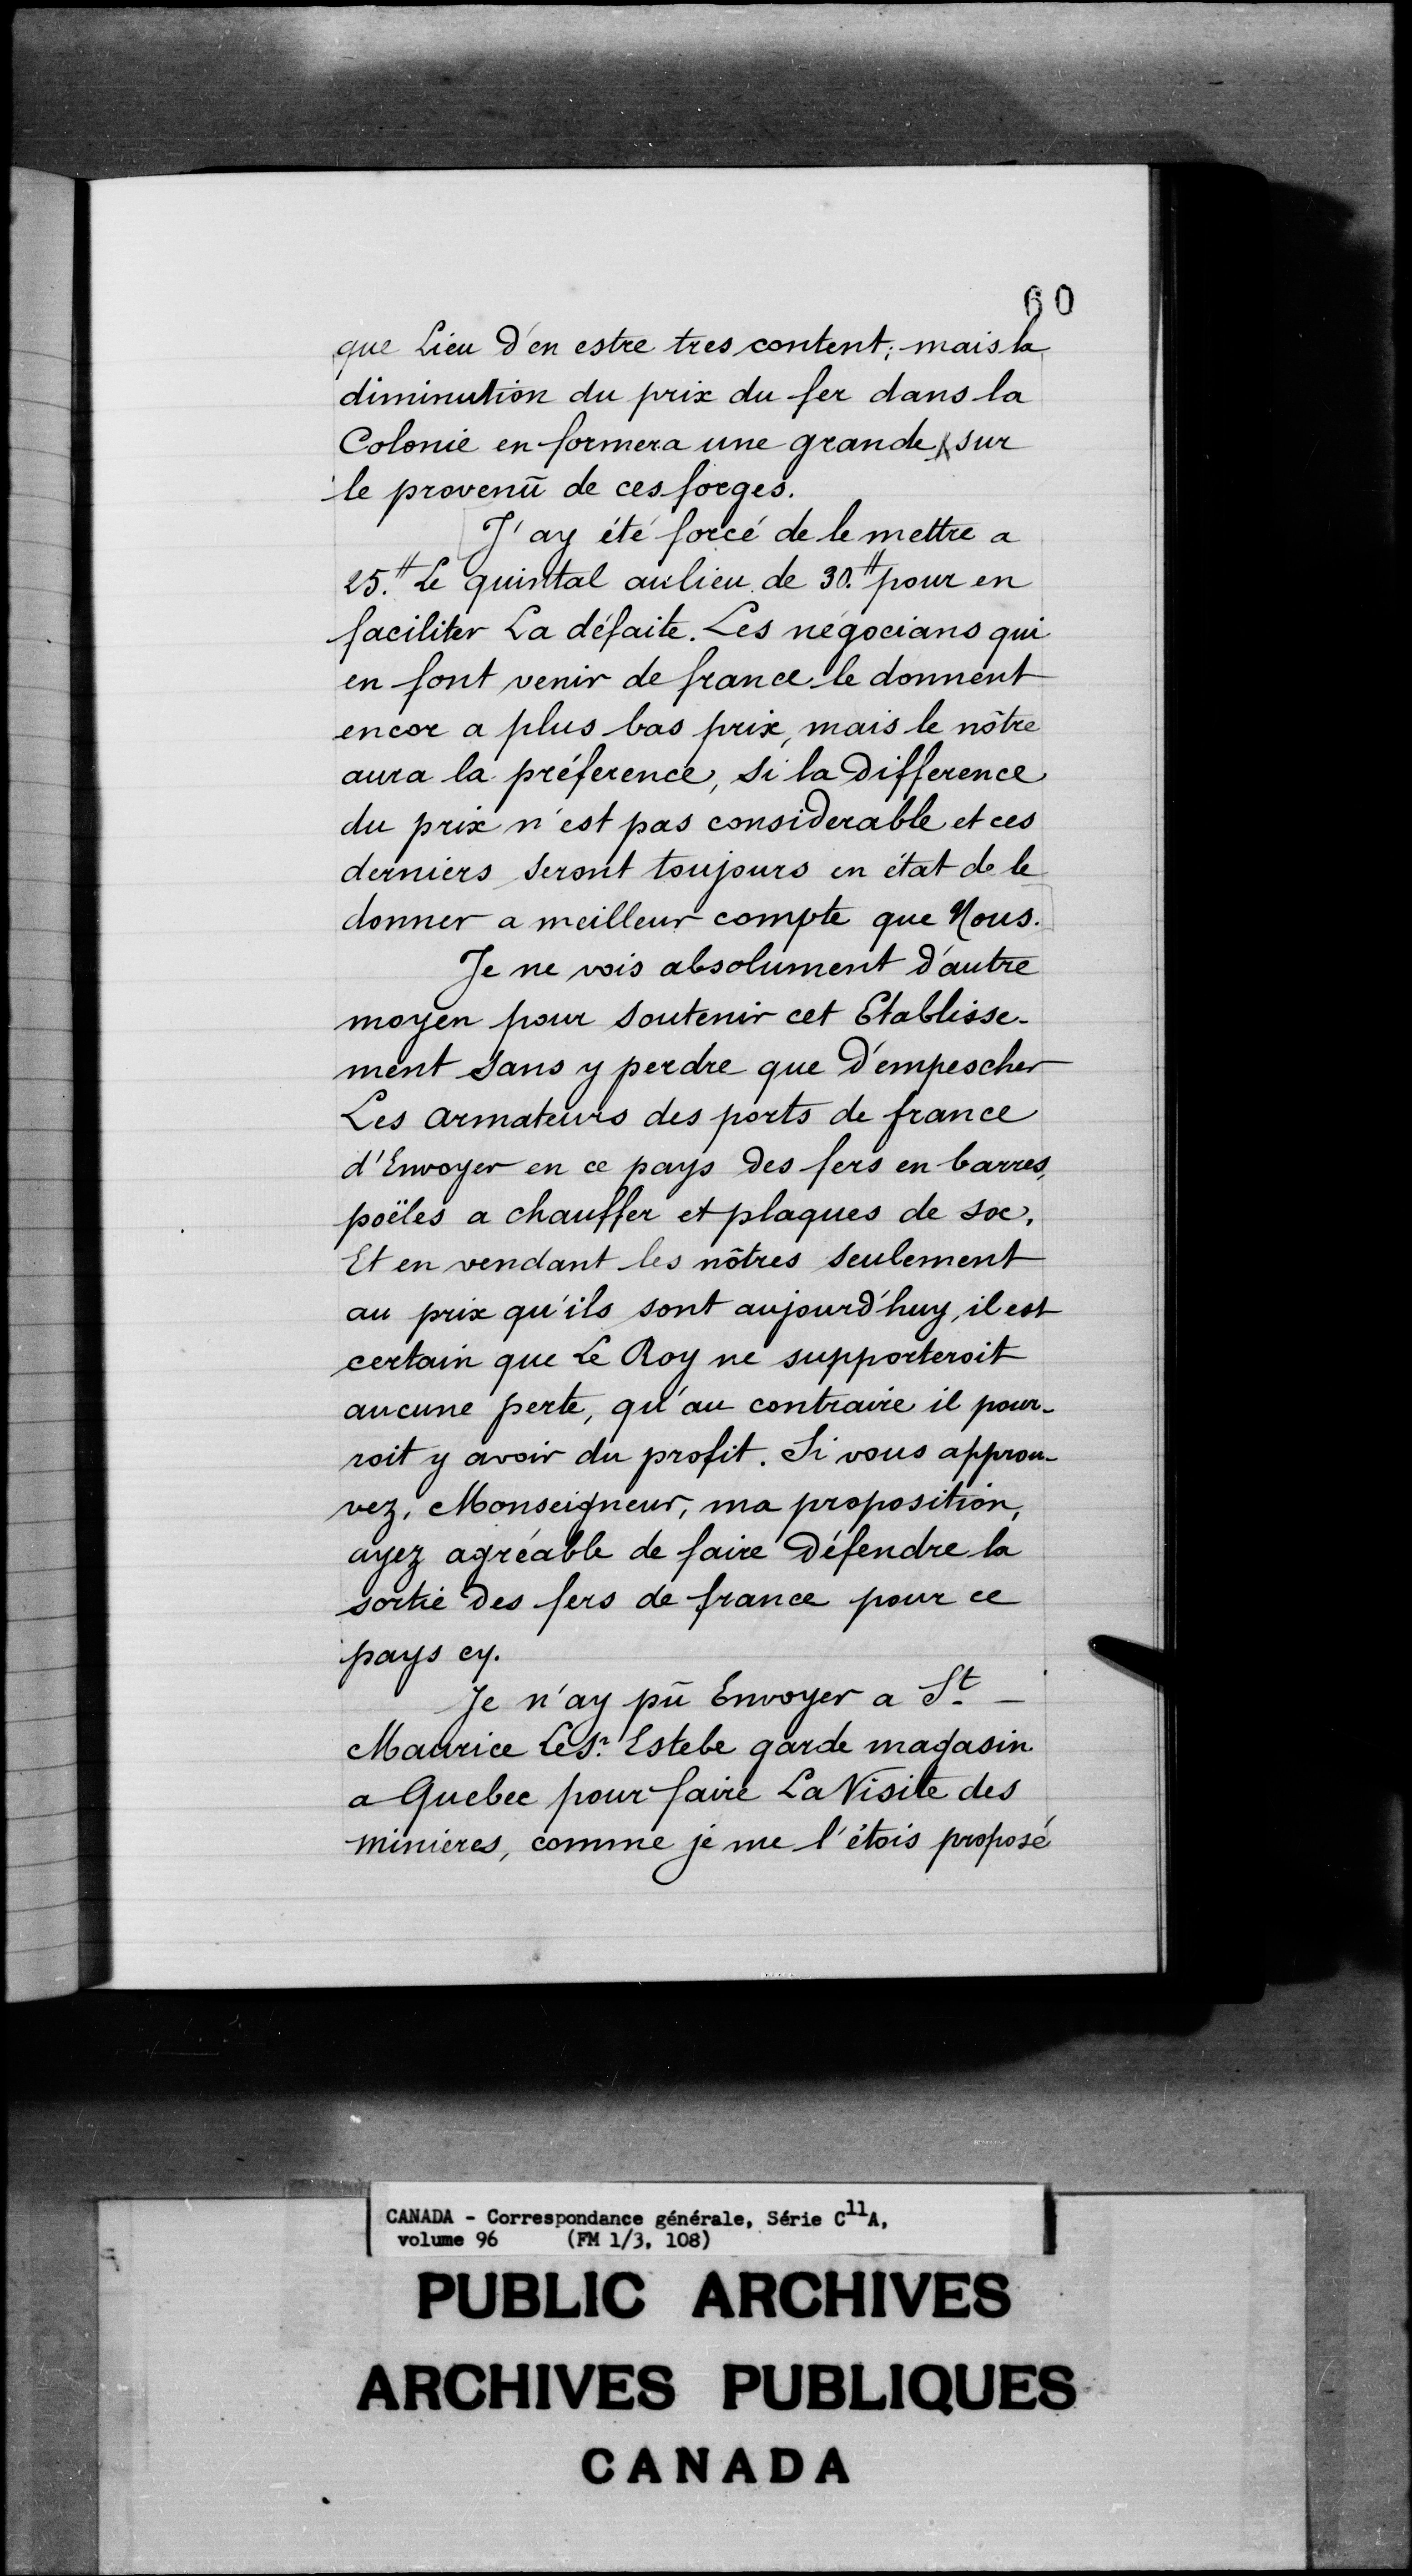 60
que Lieu d'en estre tres content; mais la
diminution du prix du fer dans la
Colonie en formera une grande sur
le provenû de ces forges.
J'ay été forcé de le mettre a
25.# Le quintal au lieu de 30.# pour en
faciliter La défaite. Les négocians qui
en font venir de france le donnent
encor a plus bas prix, mais le nôtre
aura la préference, si la difference
du prix n'est pas considerable et ces
derniers seront toujours en état de le
donner a meilleur compte que Nous.
Je ne vois absolument d'autre
moyen pour soutenir cet Etablisse-
ment sans y perdre que d'empescher
Les armateurs des ports de france
d'Envoyer en ce pays des fers en barres,
poëles a chauffer et plaques de soc,
Et en vendant les nôtres seulement
au prix qu'ils sont aujourd'huy, il est
certain que Le Roy ne supporteroit
aucune perte, qu'au contraire il pour-
roit y avoir du profit. Si vous approu-
vez, Monseigneur, ma proposition,
ayez agréable de faire défendre la
sortie des fers de france pour ce
pays cy.
Je n'ay pû Envoyer a St. -
Maurice Le Sr. Estebe garde magasin
a Quebec pour faire La Visite des
minieres, comme je me l'étois proposé
CANADA - Correspondance générale, Série C11A,
volume 96 (FM 1/3, 108)
PUBLIC ARCHIVES
ARCHIVES PUBLIQUES
CANADA